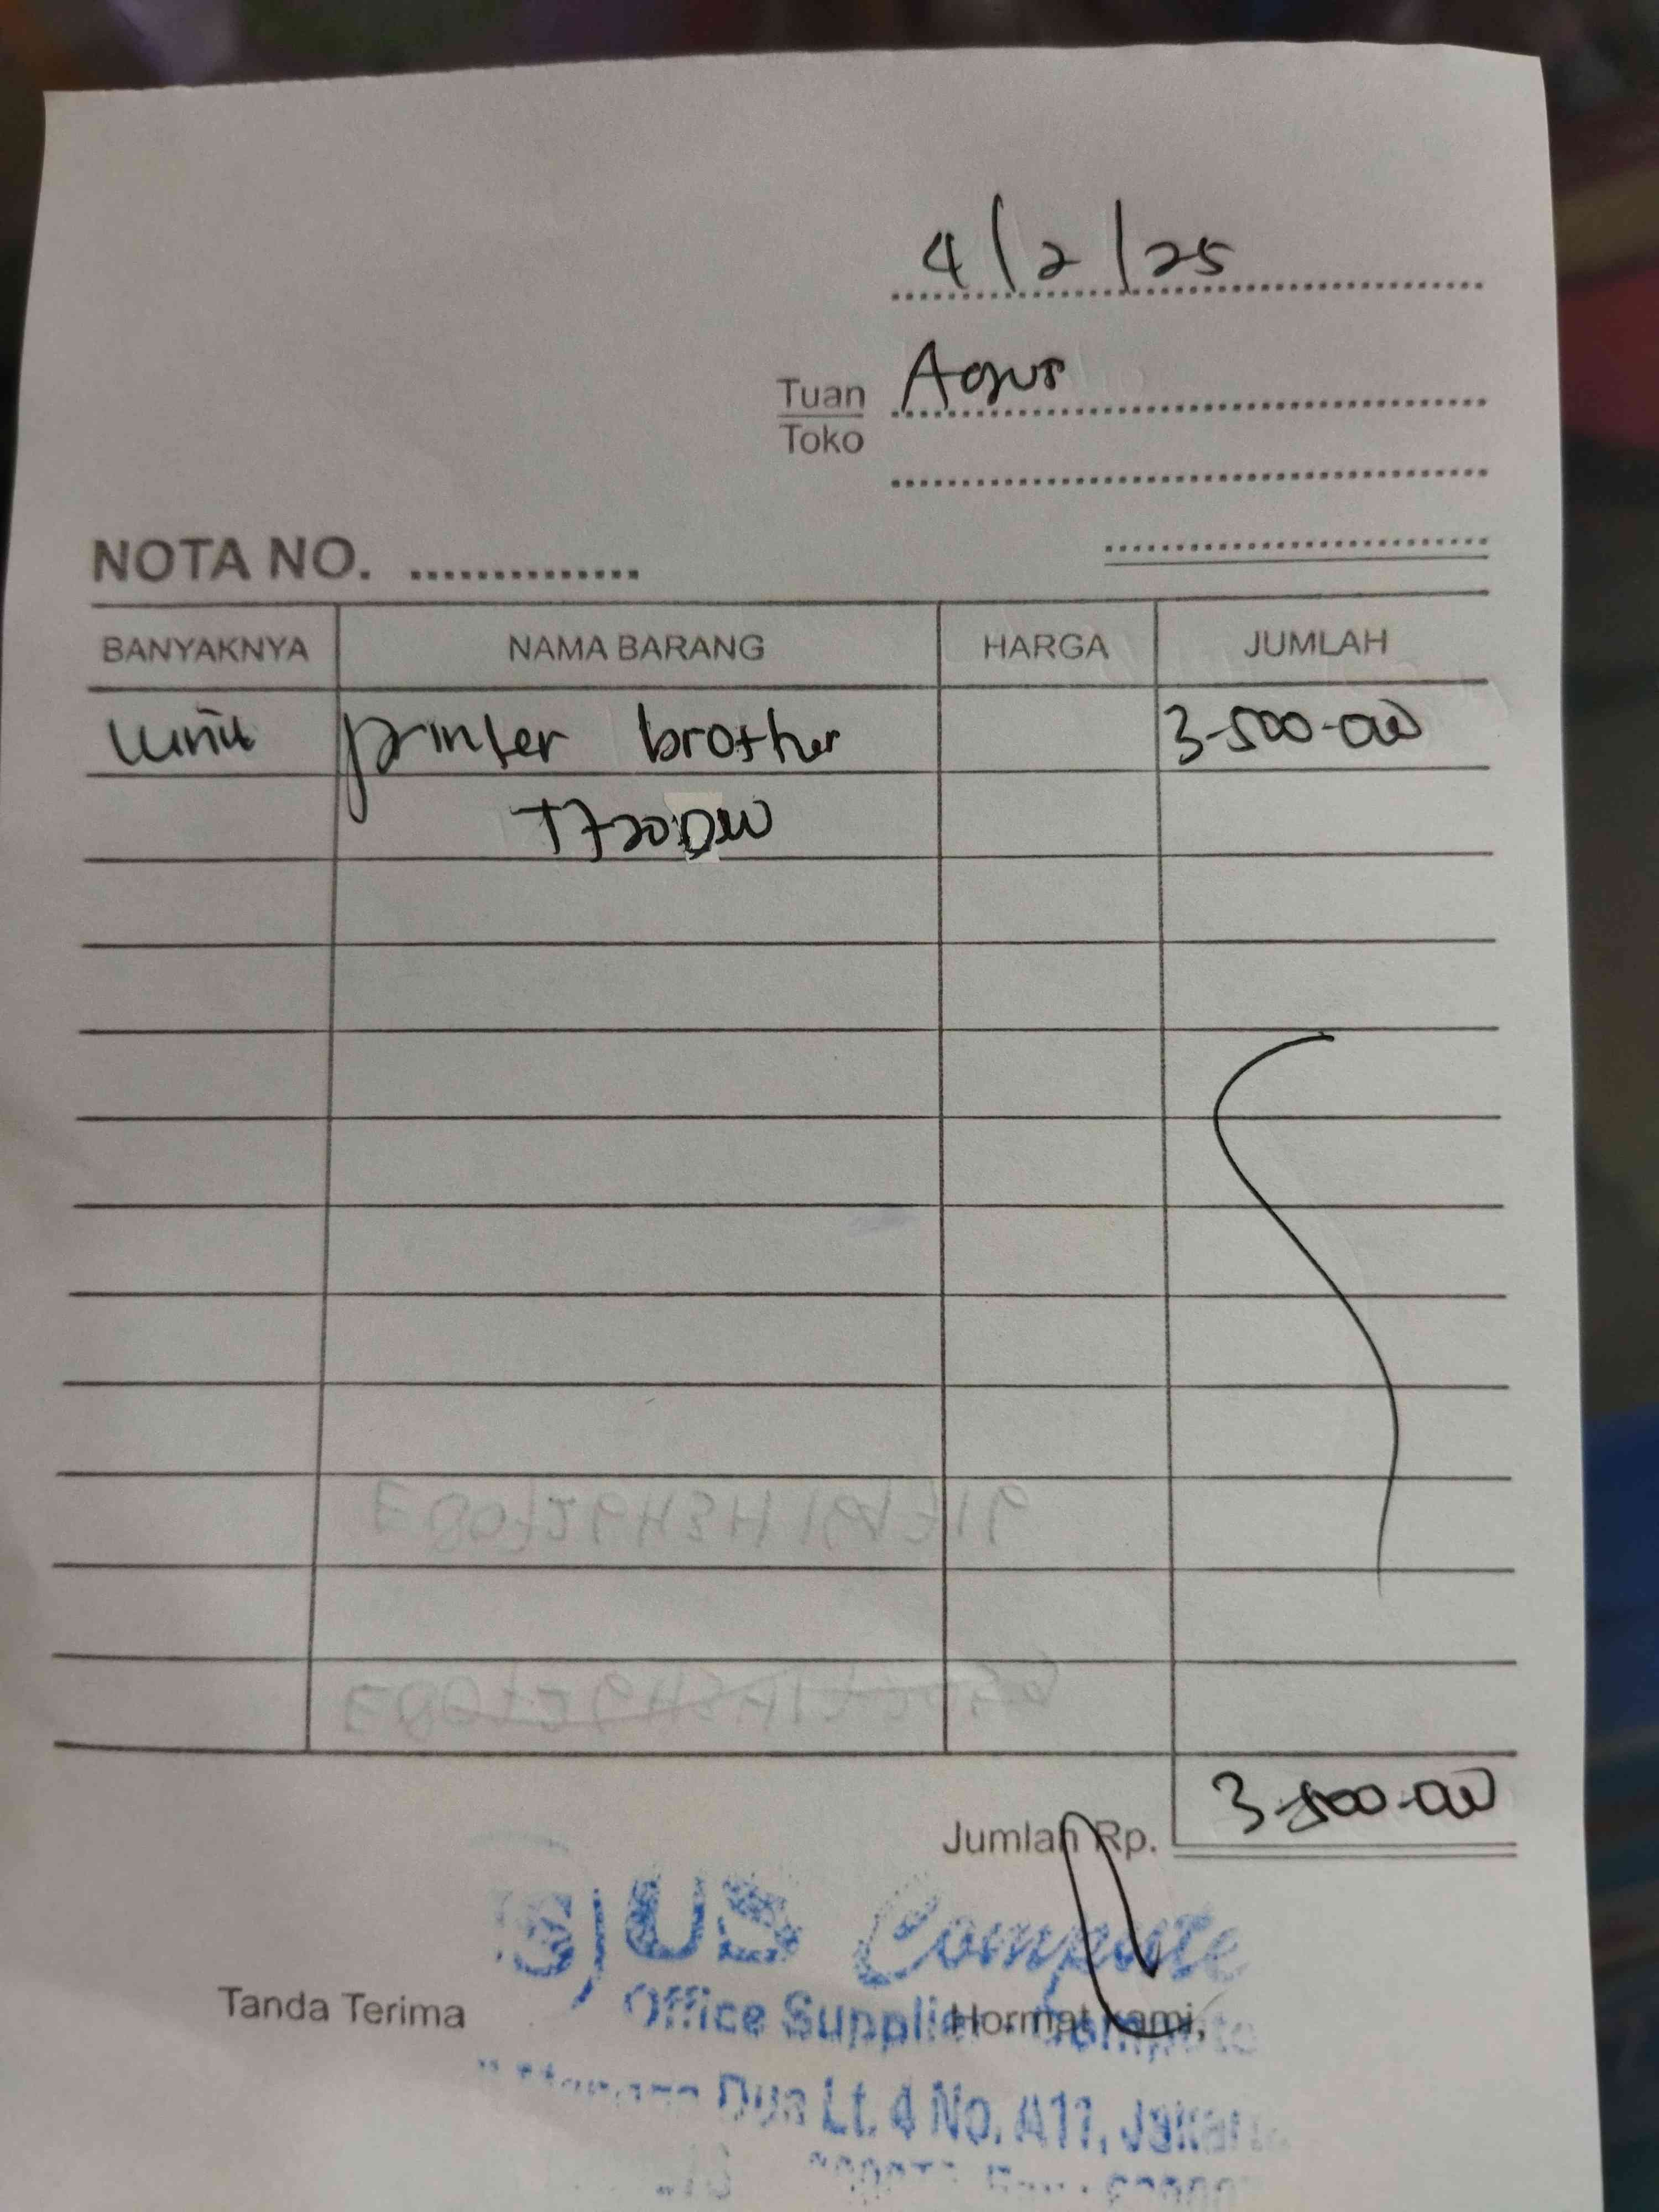 4/2/25
Tuan Agus
Toko
NOTA NO. ..............
BANYAKNYA NAMA BARANG HARGA JUMLAH
1 unit printer brother 3-500-000
T720DW
Jumlah Rp. 3-500-000
Compute
Tanda Terima Hormat kami,
Office Supplier
Dua Lt. 4 No. A11, Jakarta